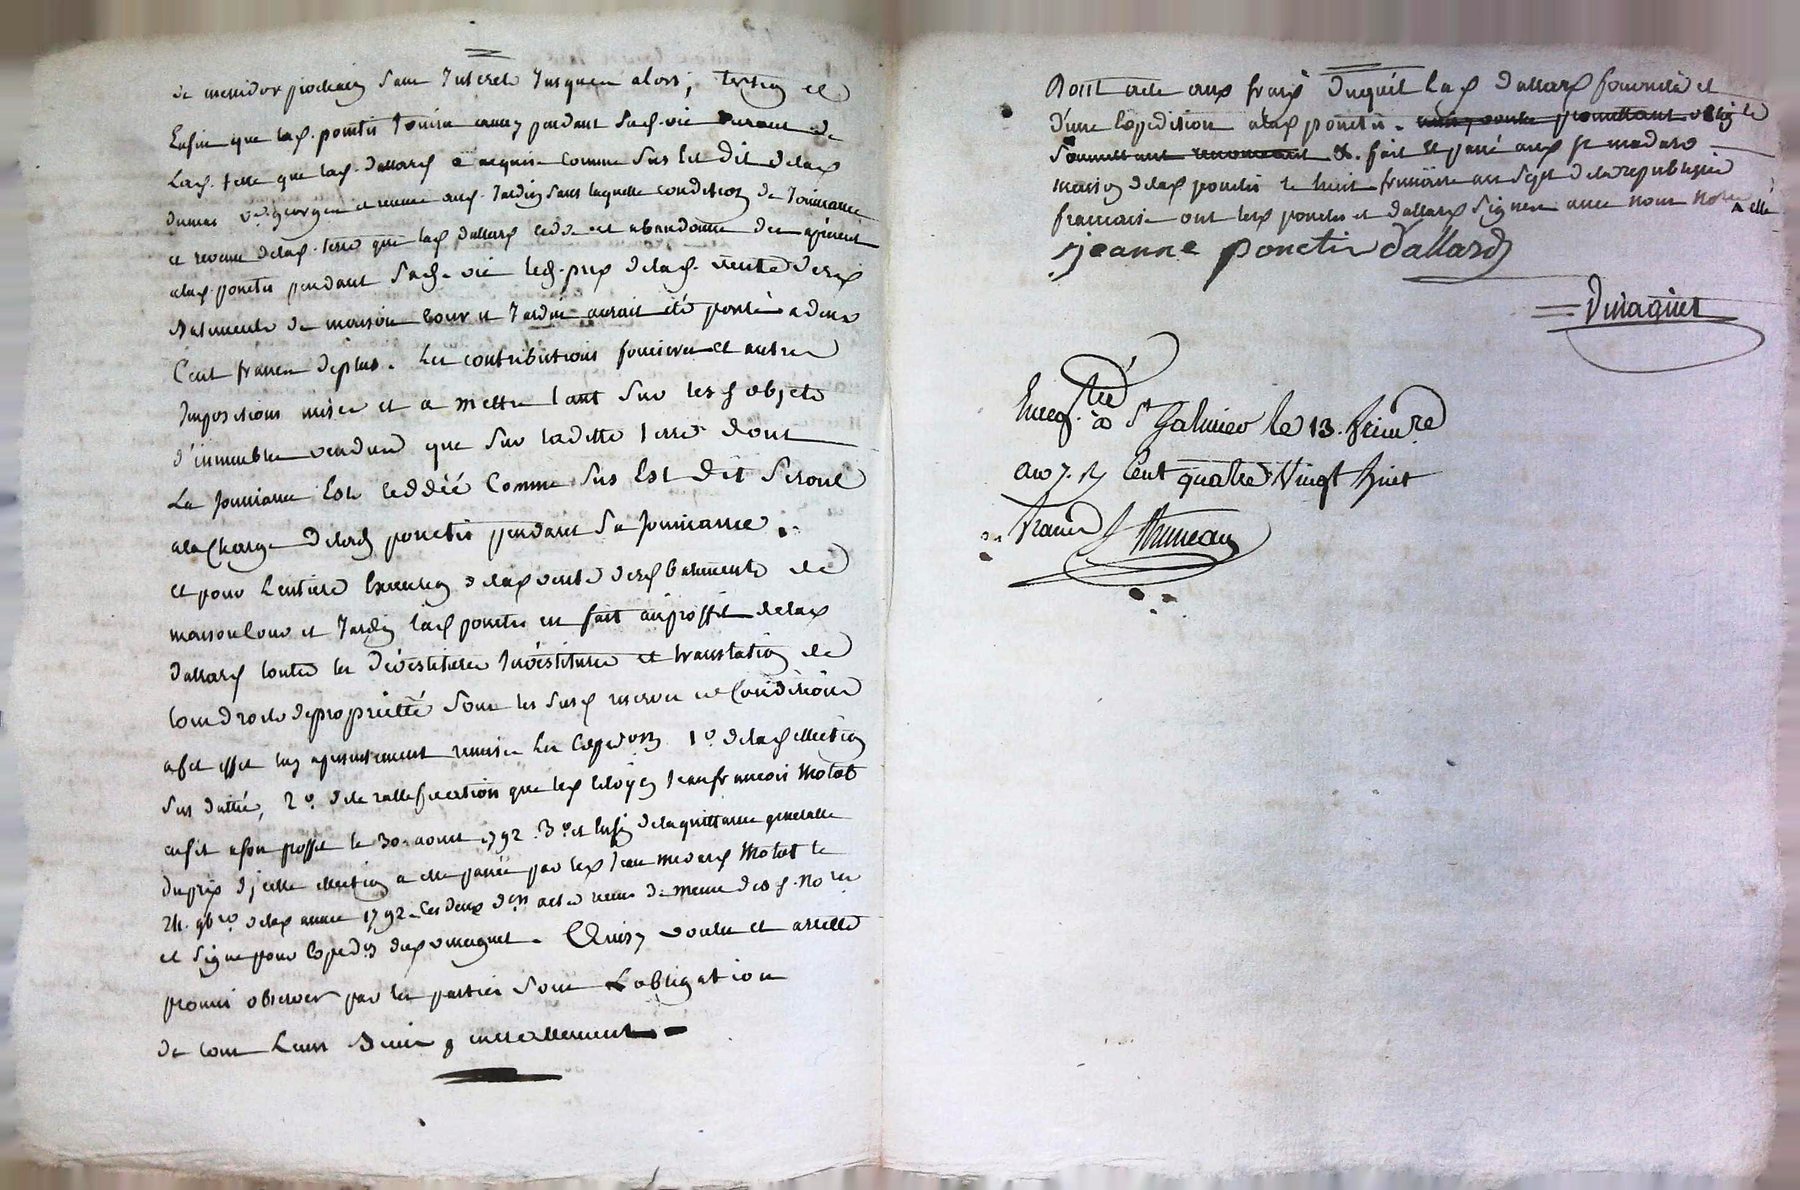 de messidor prochain sans Interet Jusques alors, tersio et
Enfin que lad. ponctis Jouira pendant sad. vie de
Lad. terre que lad. dallard a acquise comme sus est dit delad.
dumas ve georgen et jardin sans laquelle condition de Jouissance
et revenu delad. terre que lad. dallard cede et abandonne des apresent
alad. ponctis pendant sad. vie led. prix delad. vente desd.
Batiments de maison cour et Jardin aurait été porté a deux
Cent francs deplus. Les contributions foncieres et autres
Impositions mises et a mettre tant sur lesd. objets
d'immeubles vendus que sur laditte terre dont
La Jouissance Est cédéé Comme sus Est dit seront
ala Charge delad. ponctis pendant sa Jouissance.
et pour Lentiere Execution delad. vente desd. batiments de
maison cour et Jardin lad. ponctis en fait auproffit delad.
dallard toutes les dévestitures Investitures et translation de
tous droits depropriétté sous les susd. reserves et Conditions
a cet effet luy a presentement remis les Expedons 1o. delad. Election
sus dattée, 2o. dela rattification que led. Citoyen Jean francois Motat
en fit a son proffit le 30. aoust 1792. 3o. et Enfin dela quittance generalle
duprix d'jcelle Election a elle passée par led. Jean Motat le
24. 9bre. delad. année 1792. Les deux ders actes recus de meme desd. Nores
et signé pour Expedon dud. vinagnet. Ainsy voulu et arretté
promis observer par les parties sous Lobligation
de tous Leurs Biens generallement
Dont acte aux fraix duquel lad. dallard fournira et
d'une Expedition alad. ponctis. ainsy voulu promettant obligé
Soumettant renonceant &. fait et passé aud. st medard
maison delad. ponctis le huit frimaire an sept dela republique
francaise ont lesd. ponctis et dallard signé avec nous Nore
jeanne ponctis dallard
Vinagnet
Enreg.tré à St Galmier le 13. frimre
an 7. R. Cent quatre Vingt huit
francs